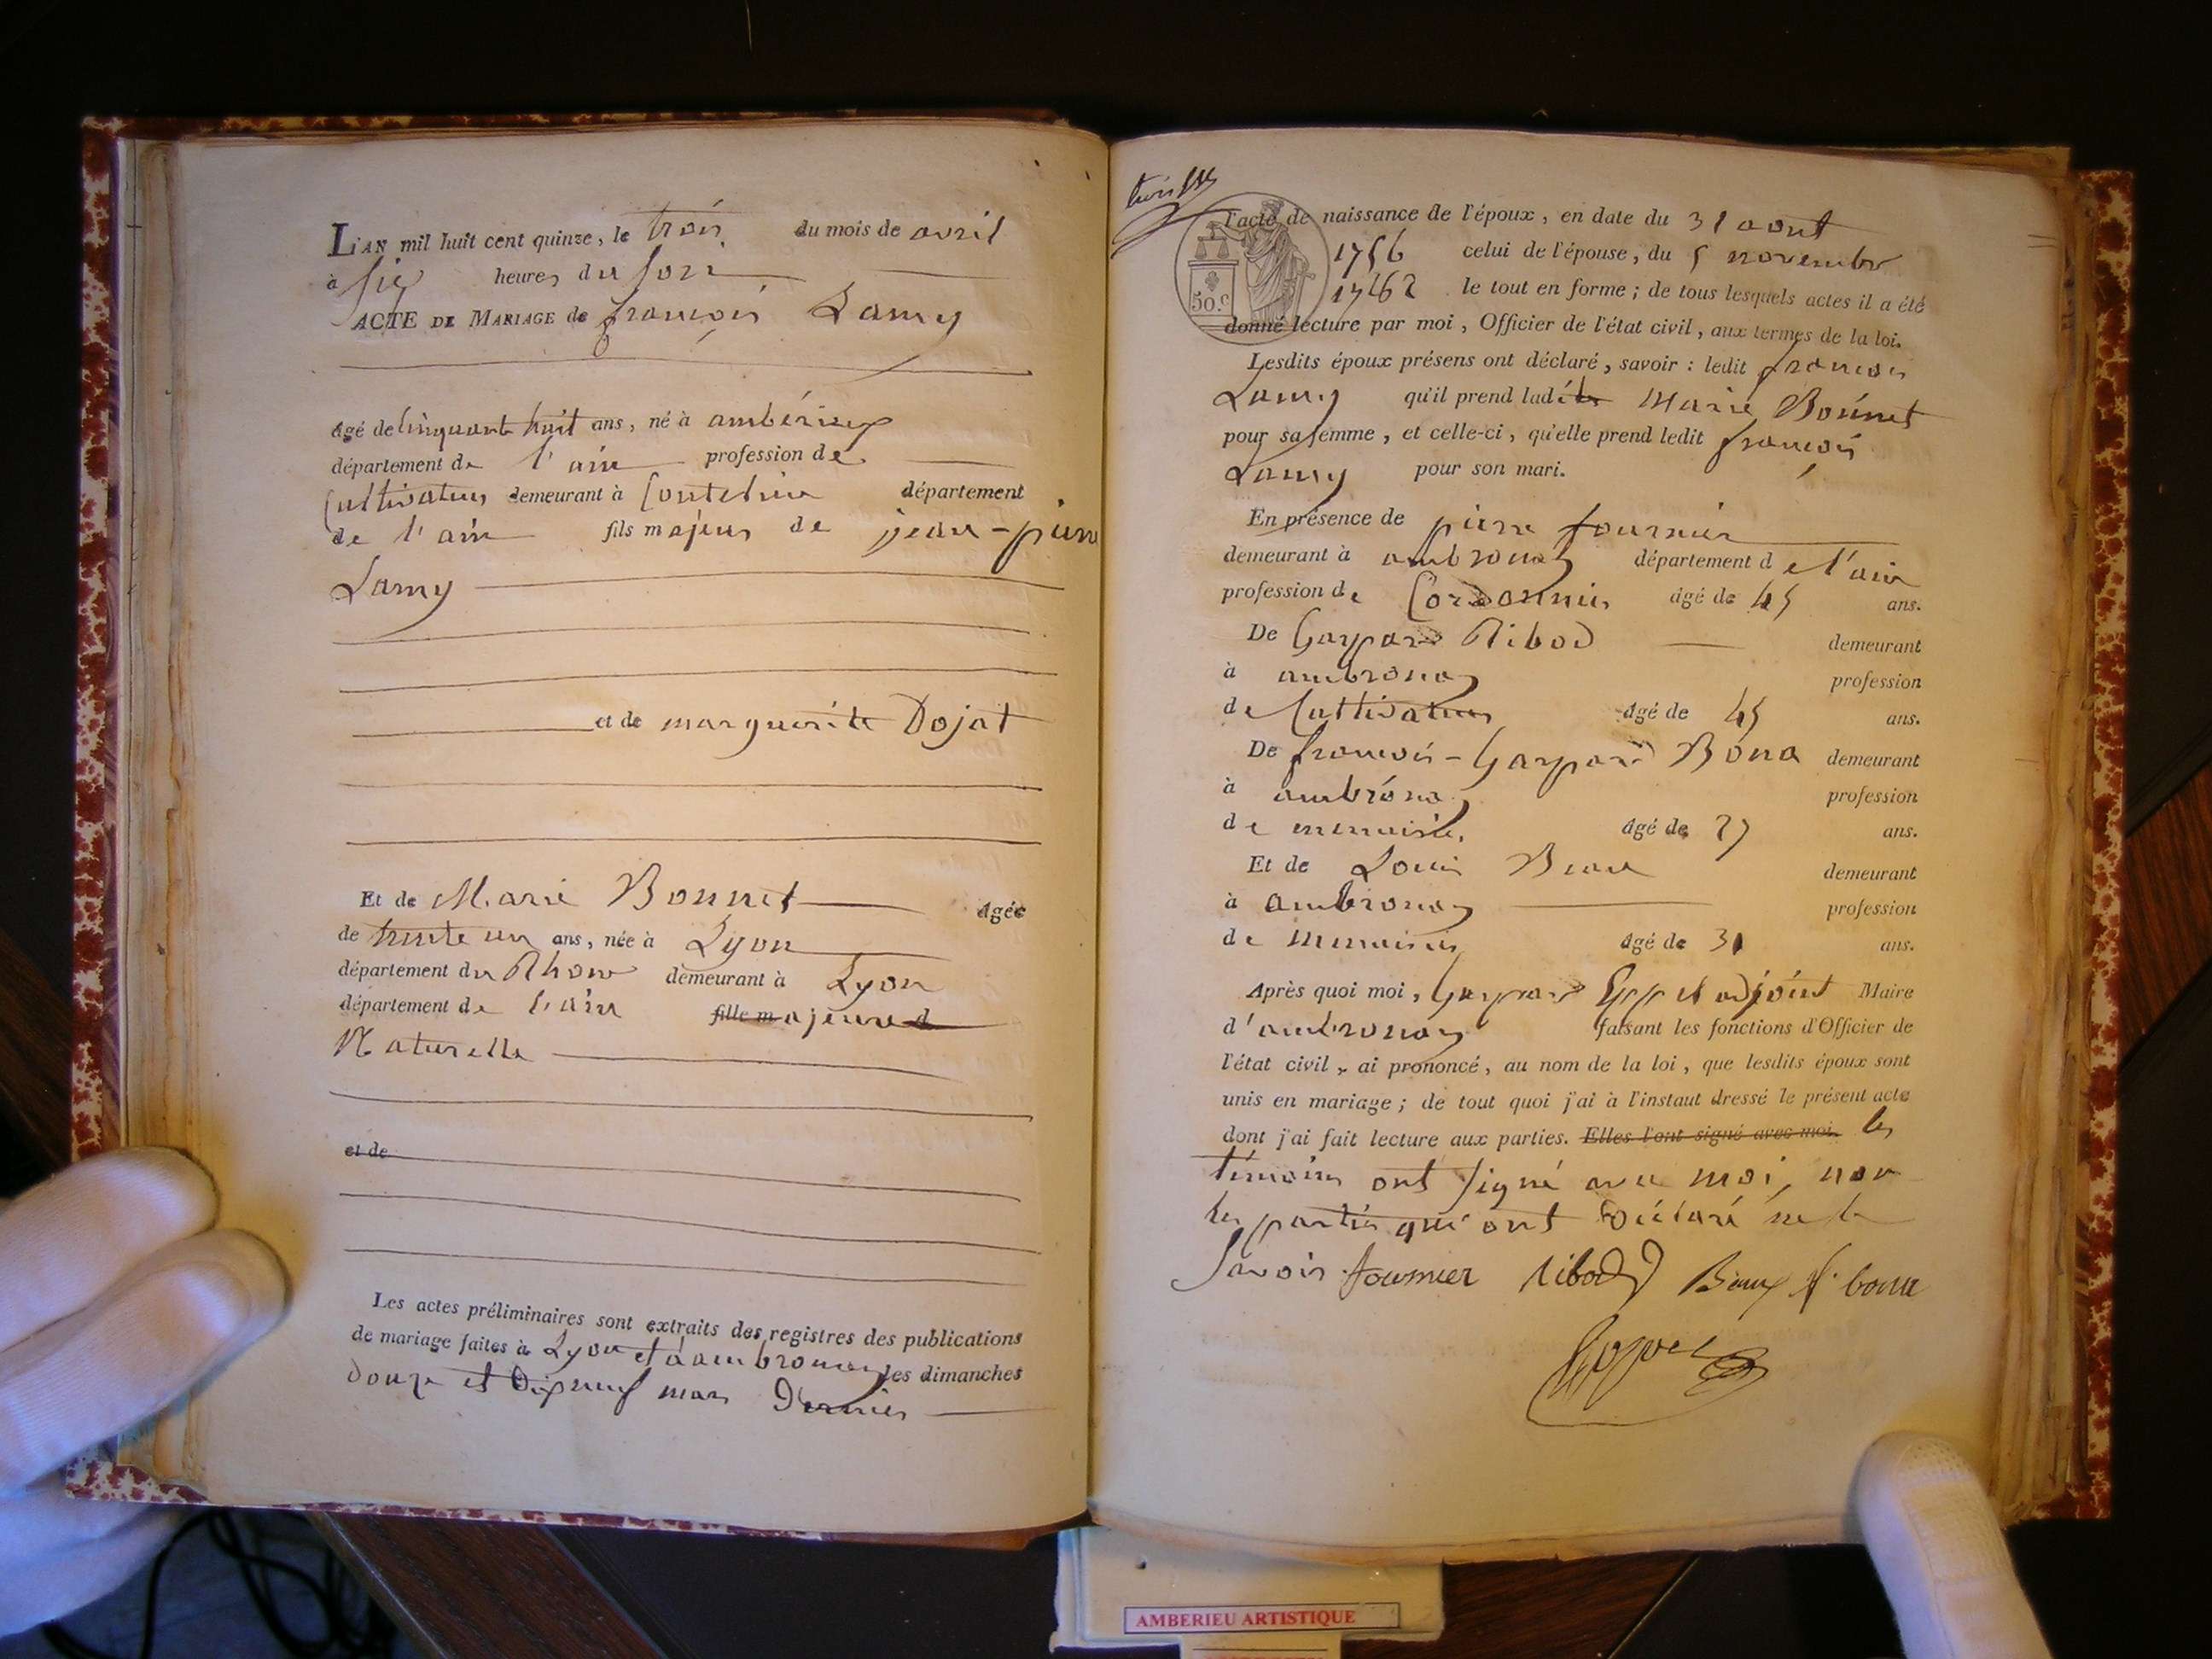 L'AN mil huit cent quinze, le trois du mois de avril
à six heures du soir
ACTE DE MARIAGE de françois Lamy
âgé de cinquante huit ans, né à ambérieux
département de l'ain profession de
Cultivateur demeurant à département
de l'ain fils majeur de jean-pierre
Lamy
et de marguerite Dojat
Et de Marie Bonnet âgée
de trente un ans, née à Lyon
département du Rhone demeurant à Lyon
département de l'ain fille majeure d
Naturelle
et de
Les actes préliminaires sont extraits des registres des publications
de mariage faites à Lyon et à ambronay les dimanches
douze et dixneuf mars dernier
l'acte de naissance de l'époux, en date du 31 aout
1756 celui de l'épouse, du 5 novembre
50.c le tout en forme; de tous lesquels actes il a été
donné lecture par moi, Officier de l'état civil, aux termes de la loi.
Lesdits époux présens ont déclaré, savoir: ledit françois
Lamy qu'il prend ladite Marie Bonnet
pour sa femme, et celle-ci, qu'elle prend ledit françois
Lamy pour son mari.
En présence de pierre fournier
demeurant à ambronay département de l'ain
profession de Cordonnier âgé de 45 ans.
De Gaspard Ribod demeurant
à ambronay profession
de Cultivateur âgé de 45 ans.
De françois-Gaspard Bona demeurant
à ambronay profession
de menuisier âgé de 27 ans.
Et de Louis Beau demeurant
à ambronay profession
de menuisier âgé de 31 ans.
Après quoi moi, Gaspard adjoint Maire
d'ambronay faisant les fonctions d'Officier de
l'état civil, ai prononcé, au nom de la loi, que lesdits époux sont
unis en mariage; de tout quoi j'ai à l'instaut dressé le présent acte
dont j'ai fait lecture aux parties. Elles l'ont signé avec moi. les
témoins ont signé avec moi, non
les parties qui ont déclaré ne le
savoir fournier ribod Beaux f. bona
AMBERIEU ARTISTIQUE